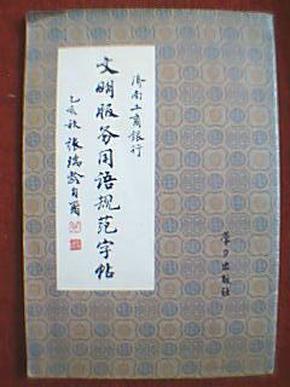 濟南工商银行
文明服务用语规范字帖
乙亥秋張瑞龄自署
出版社